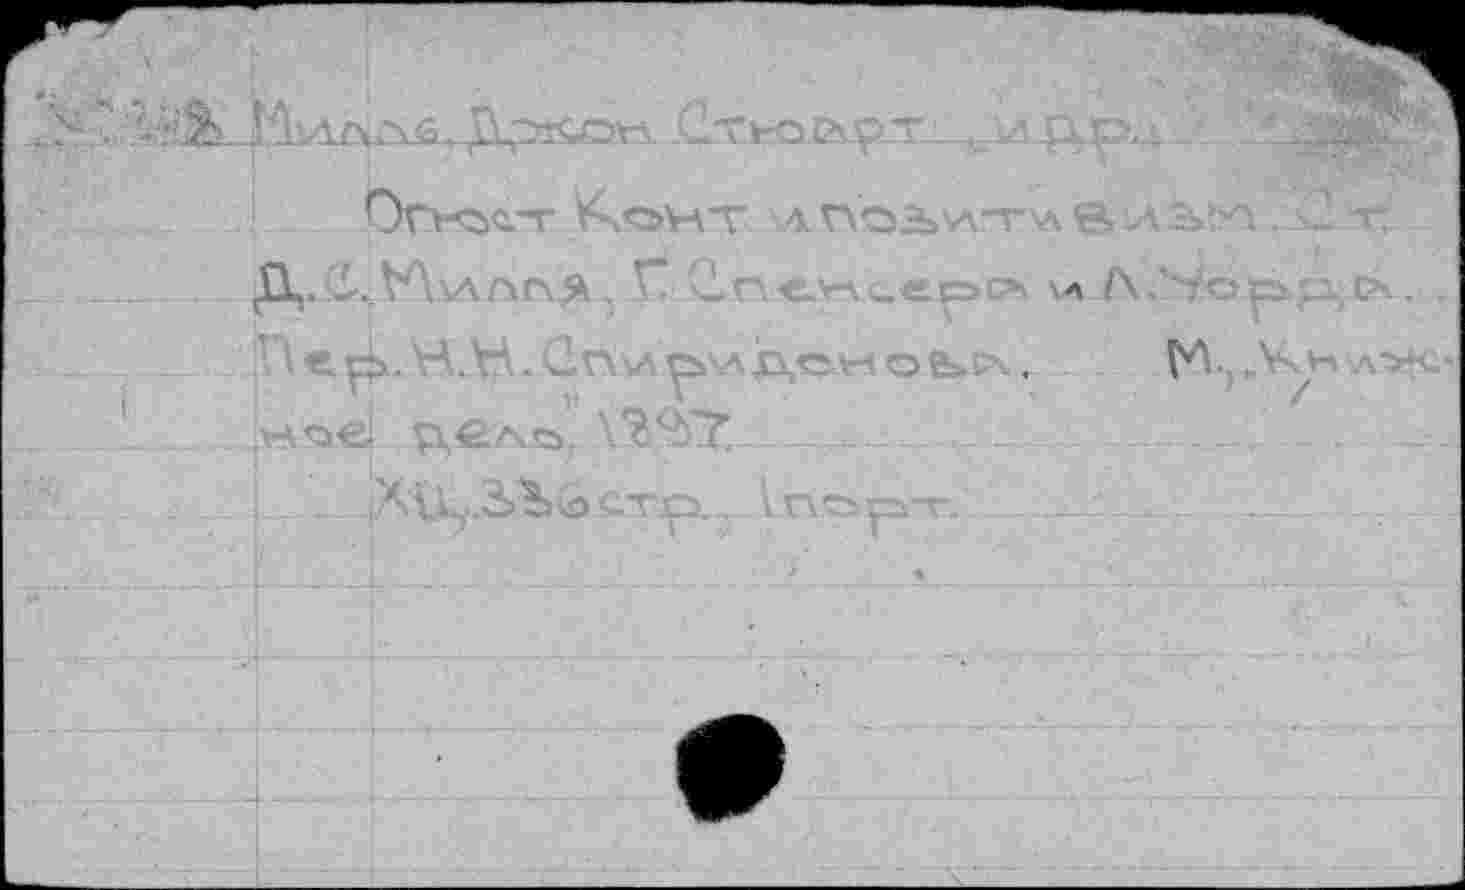 Милль, Джон Стюарт и др.
Огюст Конт и позитивизм. Ст.
Д. С. Милля, Г. Спенсера и Л. Уорда.
Пер. Н.Н. Спиридонова. М., „Книж-
ное дело", 1897.
стр. 1 порт.